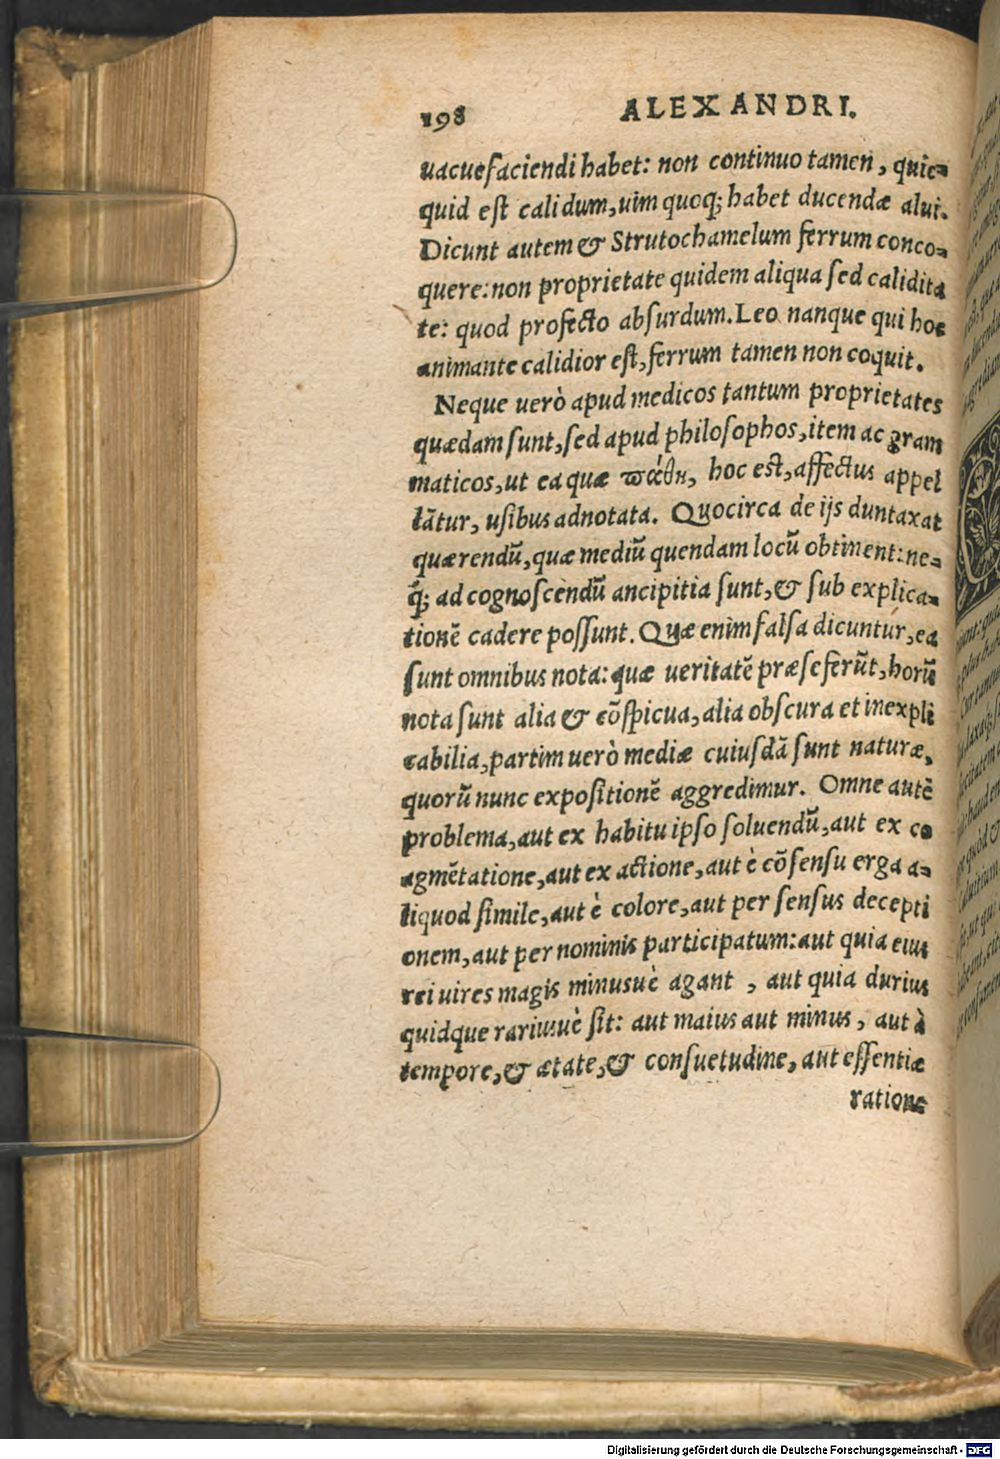 198 ALEXANDRI.
uacuefaciendi habet: non continuo tamen, quic-
quid est calidum, uim quoq; habet ducendæ alui.
Dicunt autem & Strutochamelum ferrum conco-
quere: non proprietate quidem aliqua sed calidita
te: quod profecto absurdum. Leo nanque qui hoc
animante calidior est, ferrum tamen non coquit.
Neque uerò apud medicos tantum proprietates
quædam sunt, sed apud philosophos, item ac gram
maticos, ut ea quæ πάθη, hoc est, affectus appel
lãtur, usibus adnotata. Quocirca de ijs duntaxat
quærendũ, quæ mediũ quendam locũ obtinent: ne-
q̃; ad cognoscendũ ancipitia sunt, & sub explica-
tionẽ cadere possunt. Quæ enim falsa dicuntur, ea
sunt omnibus nota: quæ ueritatẽ præ se ferũt, horũ
nota sunt alia & cõspicua, alia obscura et inexpli
cabilia, partim uerò mediæ cuiusdã sunt naturæ,
quorũ nunc expositionẽ aggredimur. Omne autẽ
problema, aut ex habitu ipso soluendũ, aut ex co
agmẽtatione, aut ex actione, aut è cõsensu erga a-
liquod simile, aut è colore, aut per sensus decepti
onem, aut per nominis participatum: aut quia eius
rei uires magis minusuè agant, aut quia durius
quidque rariusuè sit: aut maius aut minus, aut à
tempore, & ætate, & consuetudine, aut essentiæ
ratione
Digitalisierung gefördert durch die Deutsche Forschungsgemeinschaft - DFG